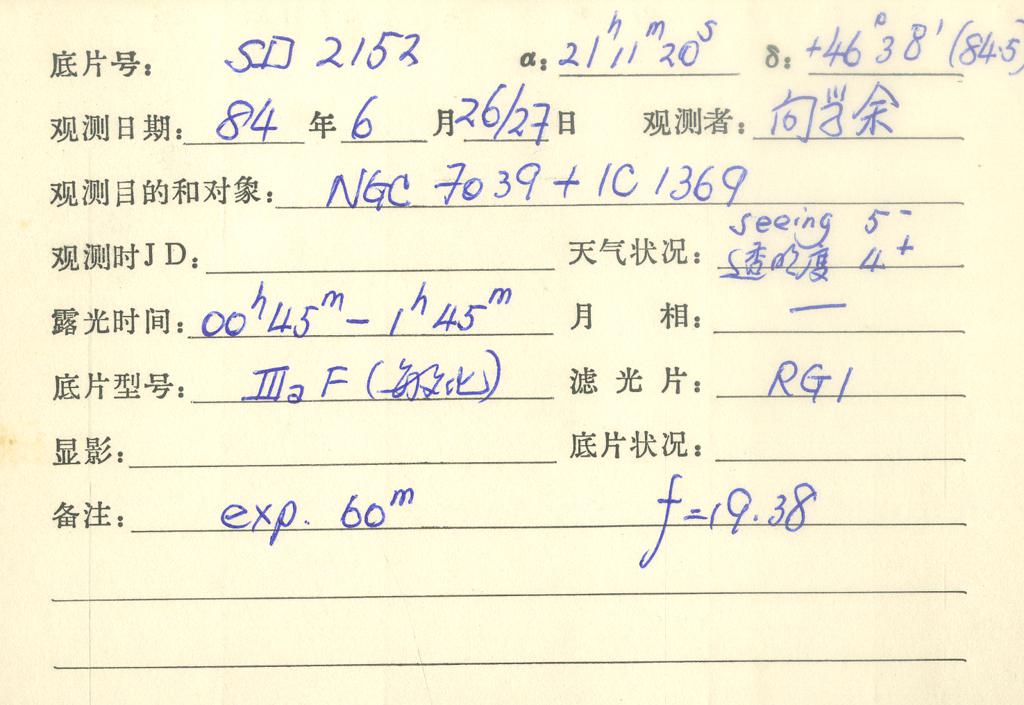 底片号: SD 2152 α: 21h 11m 20s δ: +46°38′ (84.5)
观测日期: 84 年 6 月 26/27 日 观测者: 向学余
观测目的和对象: NGC 7039 + IC 1369
观测时JD: 天气状况: seeing 5⁻
透明度 4⁺
露光时间: 00h45m - 1h45m 月 相: —
底片型号: IIIa F (敏化) 滤光片: RG1
显影: 底片状况:
备注: exp. 60m f=19.38